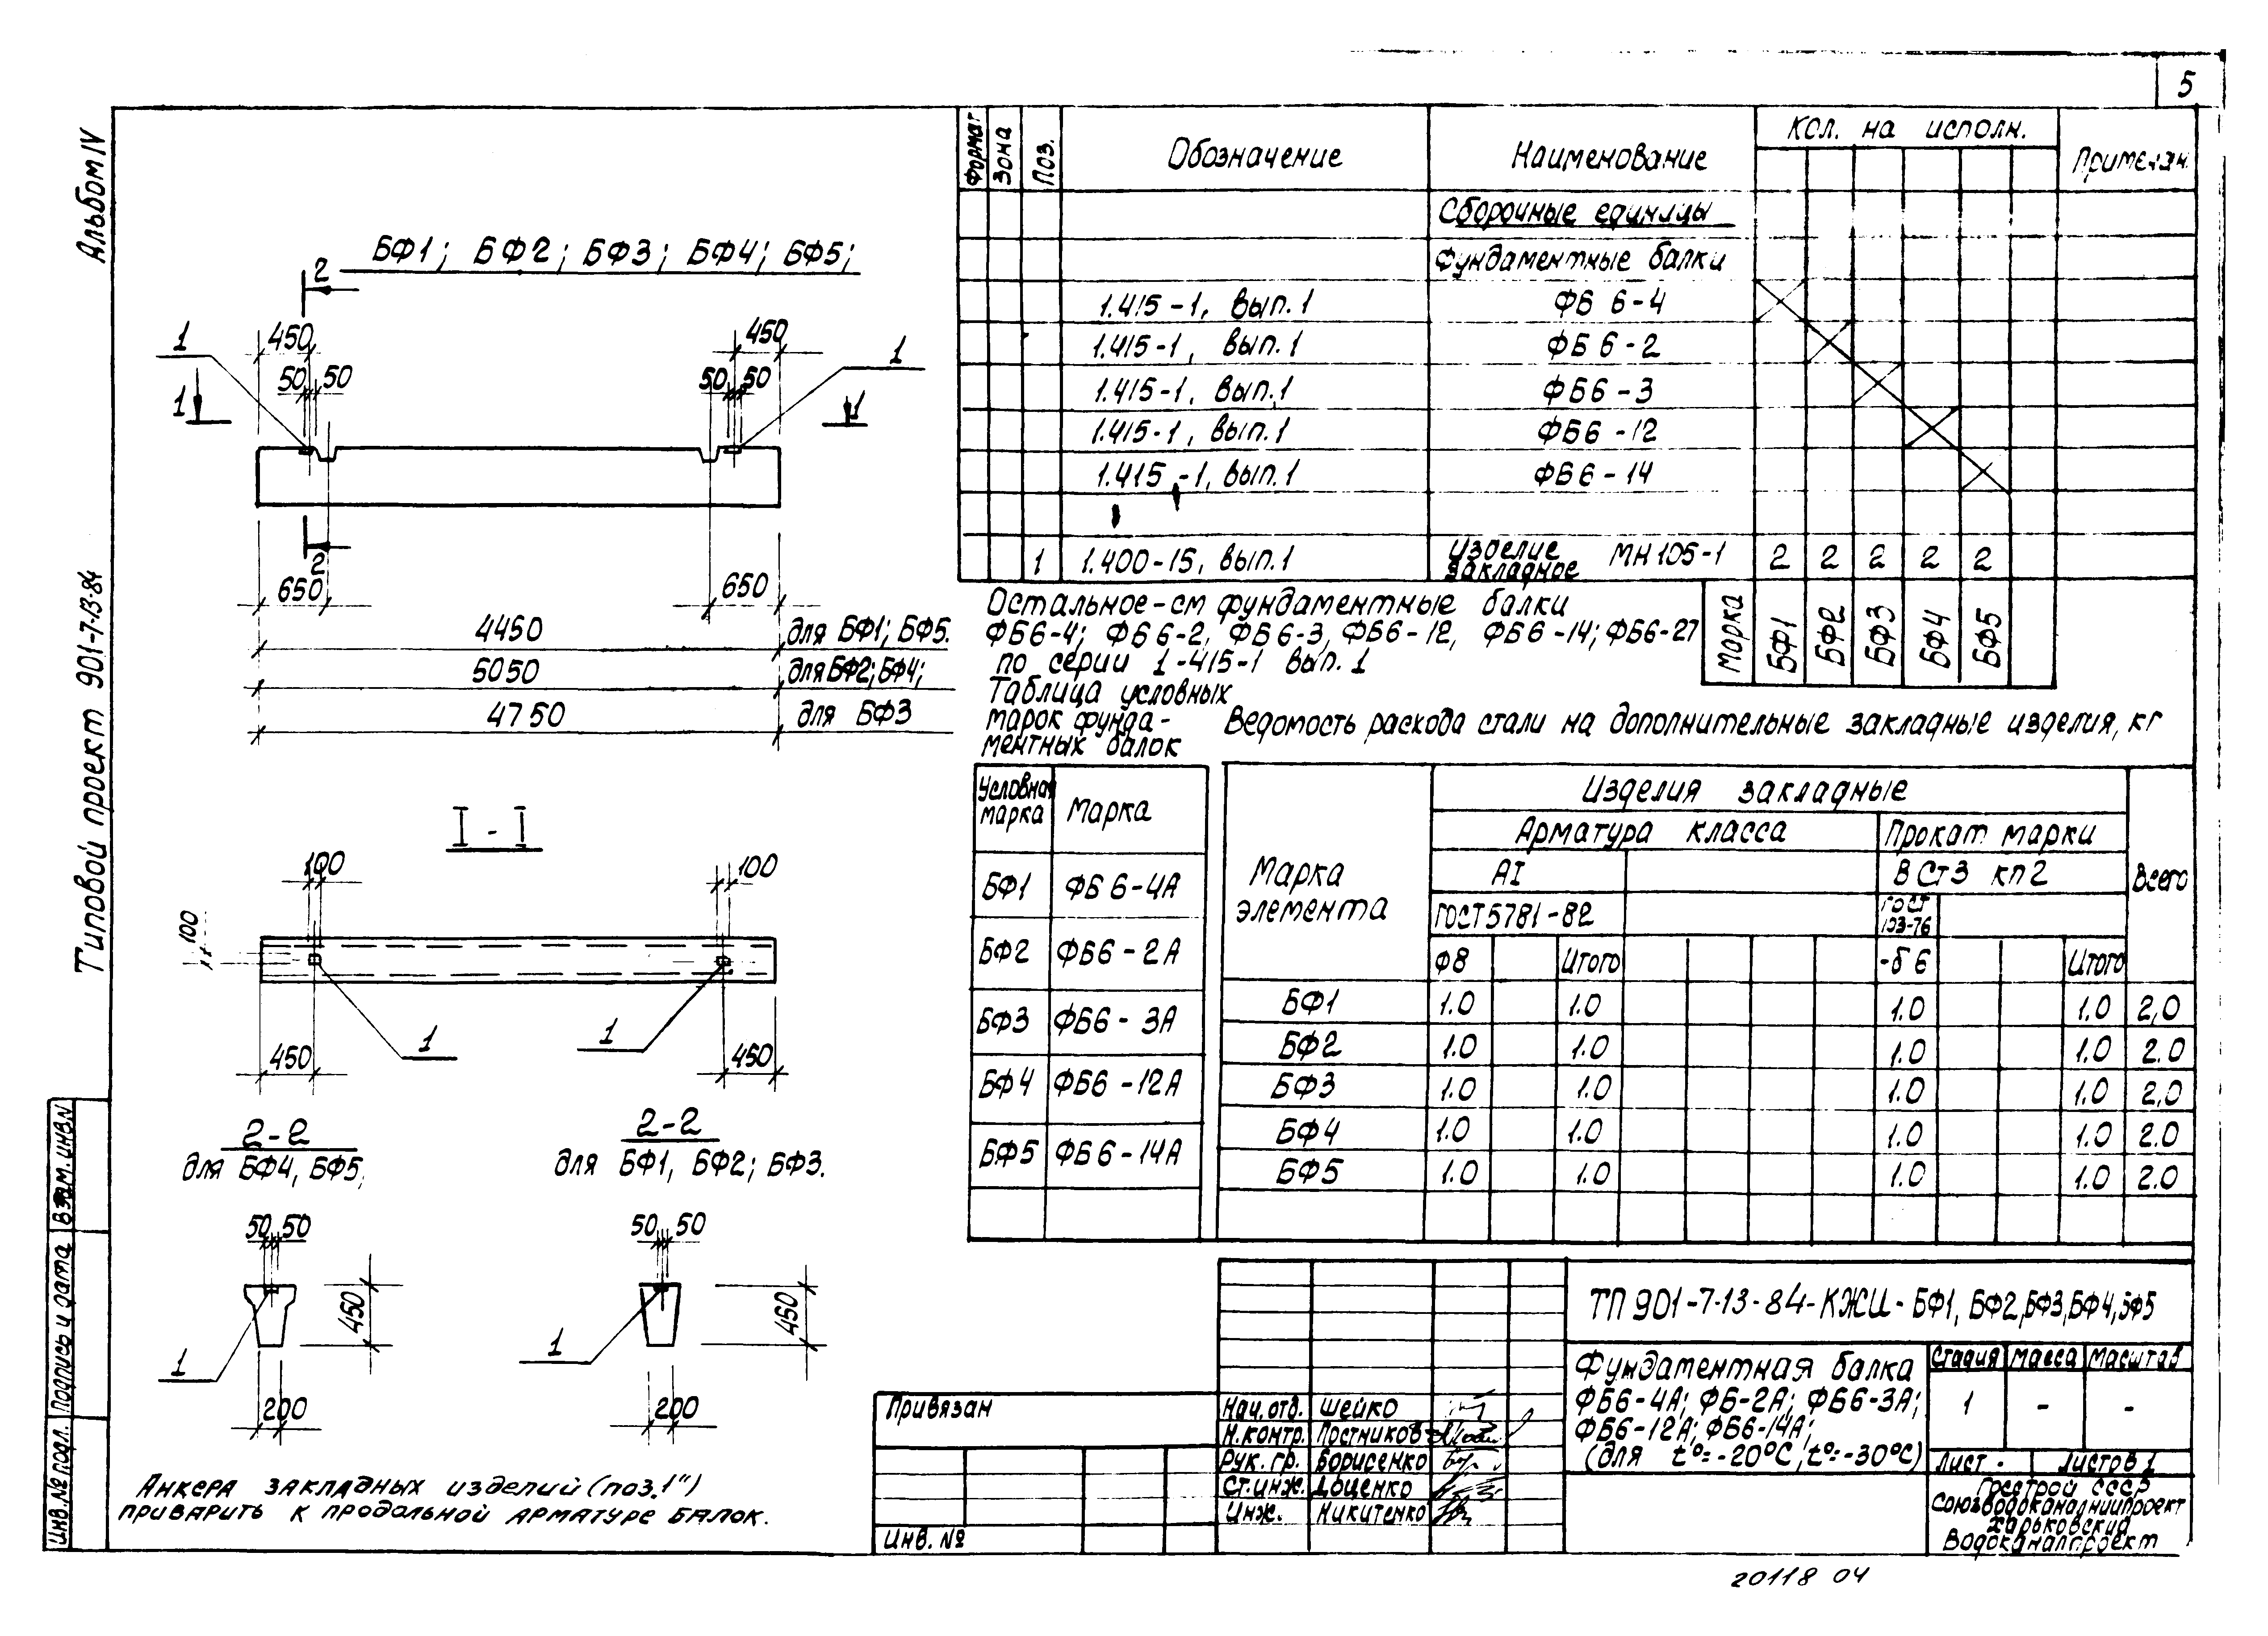 5
Альбом IV
Типовой проект 901-7-13-84
Инв.№ подл.
Подпись и дата
Взам.инв.N
БФ1; БФ2; БФ3; БФ4; БФ5;
2
450
450
1
1
50 50
50 50
1
1
2
650
650
4450
для БФ1; БФ5.
5050
для БФ2; БФ4;
4750
для БФ3
I - I
100
100
100
1
1
450
450
2-2
для БФ4, БФ5,
2-2
для БФ1, БФ2; БФ3.
50 50
50 50
450
450
1
1
200
200
Анкера закладных изделий (поз.1")
приварить к продольной арматуре балок.
Формат
Зона
Поз.
Обозначение
Наименование
Кол. на исполн.
Примечан.
Сборочные единицы
Фундаментные балки
1.415-1, вып.1 ФБ 6-4
1.415-1, вып.1 ФБ 6-2
1.415-1, вып.1 ФБ6-3
1.415-1, вып.1 ФБ6-12
1.415-1, вып.1 ФБ6-14
1 1.400-15, вып.1 Изделие закладное МН105-1 2 2 2 2 2
Марка БФ1 БФ2 БФ3 БФ4 БФ5
Остальное-см фундаментные балки
ФБ6-4; ФБ6-2, ФБ6-3, ФБ6-12, ФБ6-14; ФБ6-27
по серии 1-415-1 вып. 1
Таблица условных
марок фунда-
ментных балок
Условная марка Марка
БФ1 ФБ 6-4А
БФ2 ФБ6-2А
БФ3 ФБ6-3А
БФ4 ФБ6-12А
БФ5 ФБ6-14А
Ведомость расхода стали на дополнительные закладные изделия, кг
Марка элемента
Изделия закладные
Арматура класса
Прокат марки
Всего
АI
В Ст3 кп2
ГОСТ 5781-82
ГОСТ 103-76
Ф8 Итого -δ 6 Итого
БФ1 1.0 1.0 1.0 1.0 2,0
БФ2 1.0 1.0 1.0 1.0 2.0
БФ3 1.0 1.0 1.0 1.0 2,0
БФ4 1.0 1.0 1.0 1.0 2.0
БФ5 1.0 1.0 1.0 1.0 2.0
Привязан
Инв. №
Нач. отд. Шейко
Н.контр. Постников
Рук. гр. Борисенко
Ст.инж. Доценко
Инж. Никитенко
ТП 901-7-13-84-КЖИ-БФ1, БФ2,БФ3,БФ4,БФ5
Фундаментная балка
ФБ6-4А; ФБ-2А; ФБ6-3А;
ФБ6-12А; ФБ6-14А;
(для t°=-20°С; t°=-30°С)
Стадия Масса Масштаб
1 - -
Лист - Листов 1
Госстрой СССР
Союзводоканалниипроект
Харьковский
Водоканалпроект
20118 04